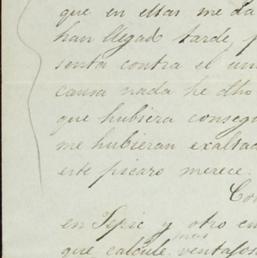 que en ellas me da
han llegad tarde p
senta contra el un
causa nada he dho
que hubiera conseg
me hubieran exaltad
este picaro merece.
Con
en Tepic y otro en
pues
que calcule ventajos